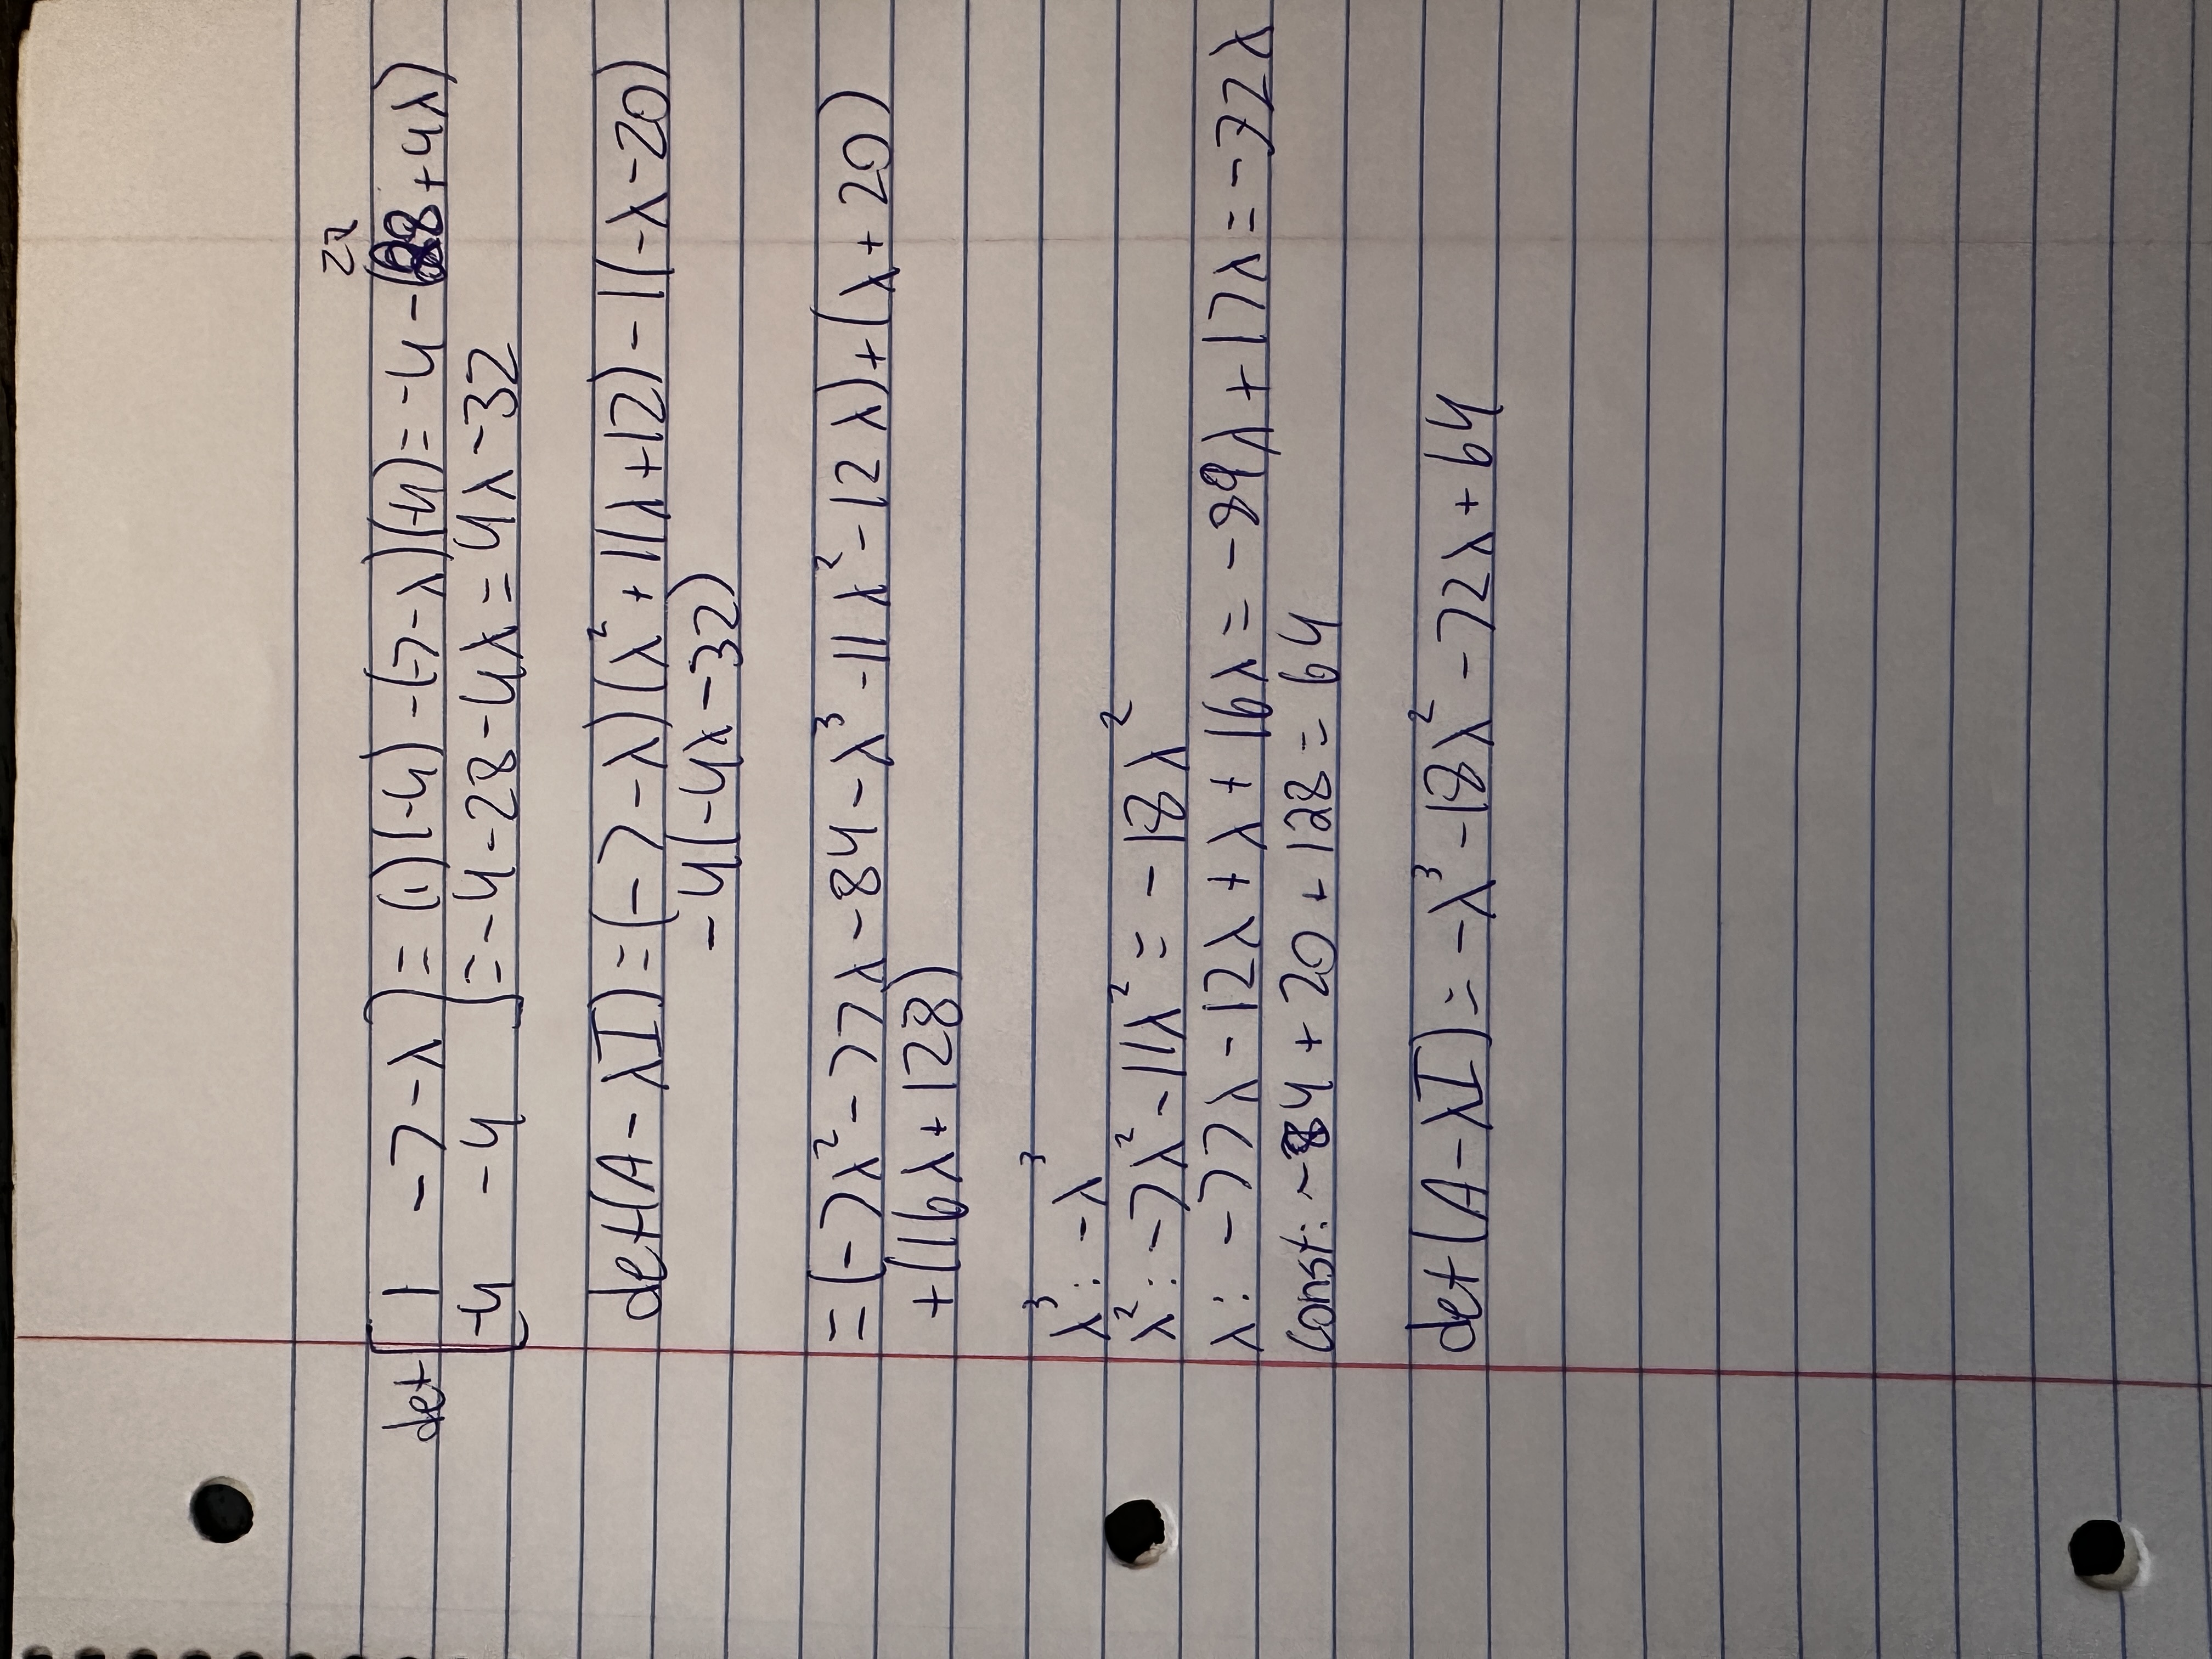 27
det [ 1 -7-λ ] = (1)(-4) -(-7-λ)(-4) = -4 -(28+4λ)
[ -4 -4 ] = -4-28-4λ = 4λ-32
det(A-λI) = (-7-λ)(λ²+11λ+12) -1(-λ-20)
-4(-4λ-32)
= (-7λ²-77λ-84-λ³-11λ²-12λ)+(λ+20)
+(16λ+128)
λ³: -λ³
λ²: -7λ²-11λ² = -18λ²
λ: -77λ-12λ+λ+16λ = -89λ+17λ = -72λ
const: -84+20+128 = 64
det(A-λI) = -λ³-18λ²-72λ+64